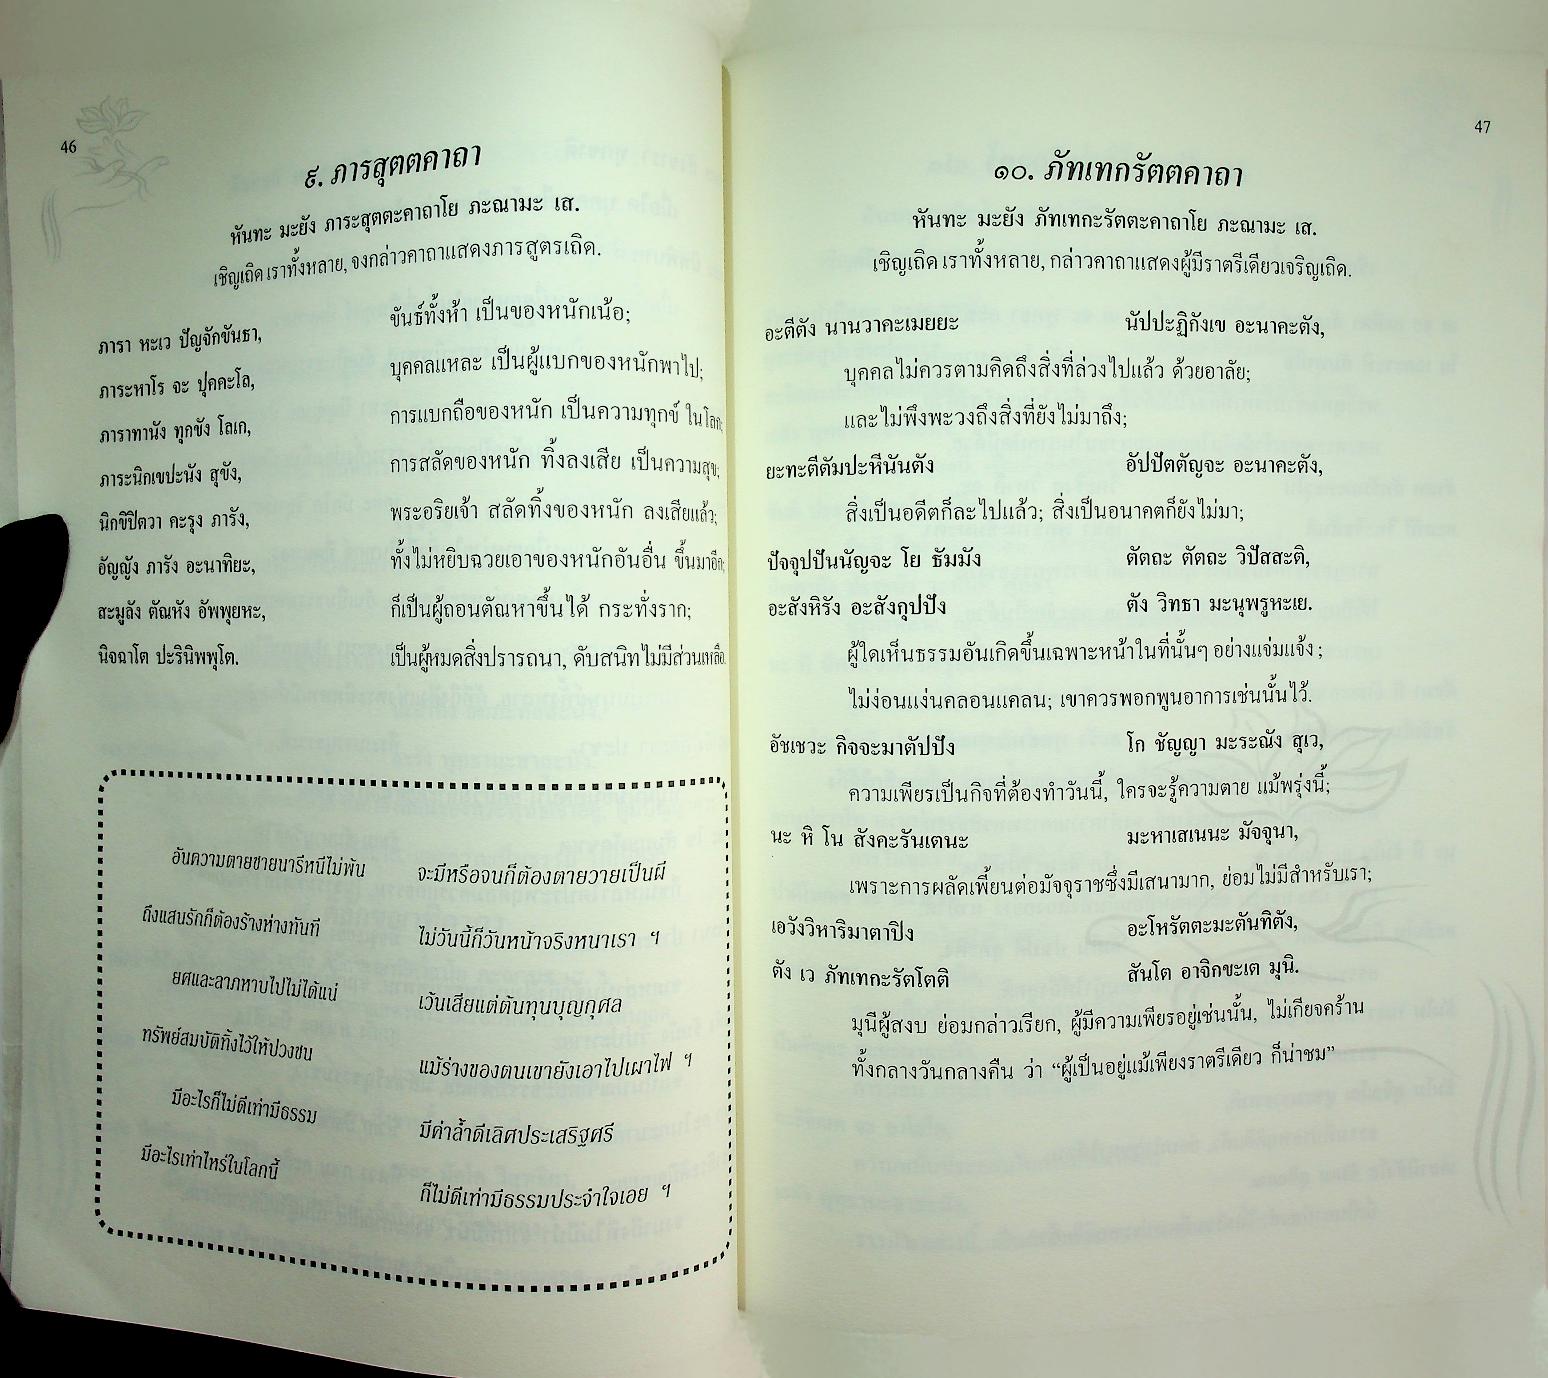 46
๙. ภารสุตตคาถา
หันทะ มะยัง ภาระสุตตะคาถาโย ภะณามะ เส.
เชิญเถิด เราทั้งหลาย, จงกล่าวคาถาแสดงภารสูตรเถิด.
ภารา หะเว ปัญจักขันธา, ขันธ์ทั้งห้า เป็นของหนักเน้อ;
ภาระหาโร จะ ปุคคะโล, บุคคลแหละ เป็นผู้แบกของหนักพาไป;
ภาราทานัง ทุกขัง โลเก, การแบกถือของหนัก เป็นความทุกข์ ในโลก;
ภาระนิกเขปะนัง สุขัง, การสลัดของหนัก ทิ้งลงเสีย เป็นความสุข;
นิกขิปิตวา คะรุง ภารัง, พระอริยเจ้า สลัดทิ้งของหนัก ลงเสียแล้ว;
อัญญัง ภารัง อะนาทิยะ, ทั้งไม่หยิบฉวยเอาของหนักอันอื่น ขึ้นมาอีก;
สะมูลัง ตัณหัง อัพพุยหะ, ก็เป็นผู้ถอนตัณหาขึ้นได้ กระทั่งราก;
นิจฉาโต ปะรินิพพุโต. เป็นผู้หมดสิ่งปรารถนา, ดับสนิทไม่มีส่วนเหลือ.
อันความตายชายนารีหนีไม่พ้น จะมีหรือจนก็ต้องตายวายเป็นผี
ถึงแสนรักก็ต้องร้างห่างทันที ไม่วันนี้ก็วันหน้าจริงหนาเรา ฯ
ยศและลาภหาบไปไม่ได้แน่ เว้นเสียแต่ต้นทุนบุญกุศล
ทรัพย์สมบัติทิ้งไว้ให้ปวงชน แม้ร่างของตนเขายังเอาไปเผาไฟ ฯ
มีอะไรก็ไม่ดีเท่ามีธรรม มีค่าล้ำดีเลิศประเสริฐศรี
มีอะไรเท่าไหร่ในโลกนี้ ก็ไม่ดีเท่ามีธรรมประจำใจเอย ฯ
47
๑๐. ภัทเทกรัตตคาถา
หันทะ มะยัง ภัทเทกะรัตตะคาถาโย ภะณามะ เส.
เชิญเถิด เราทั้งหลาย, กล่าวคาถาแสดงผู้มีราตรีเดียวเจริญเถิด.
อะตีตัง นานวาคะเมยยะ นัปปะฏิกังเข อะนาคะตัง,
บุคคลไม่ควรตามคิดถึงสิ่งที่ล่วงไปแล้ว ด้วยอาลัย;
และไม่พึงพะวงถึงสิ่งที่ยังไม่มาถึง;
ยะทะตีตัมปะหีนันตัง อัปปัตตัญจะ อะนาคะตัง,
สิ่งเป็นอดีตก็ละไปแล้ว; สิ่งเป็นอนาคตก็ยังไม่มา;
ปัจจุปปันนัญจะ โย ธัมมัง ตัตถะ ตัตถะ วิปัสสะติ,
อะสังหิรัง อะสังกุปปัง ตัง วิทธา มะนุพรูหะเย.
ผู้ใดเห็นธรรมอันเกิดขึ้นเฉพาะหน้าในที่นั้นๆ อย่างแจ่มแจ้ง;
ไม่ง่อนแง่นคลอนแคลน; เขาควรพอกพูนอาการเช่นนั้นไว้.
อัชเชวะ กิจจะมาตัปปัง โก ชัญญา มะระณัง สุเว,
ความเพียรเป็นกิจที่ต้องทำวันนี้, ใครจะรู้ความตาย แม้พรุ่งนี้;
นะ หิ โน สังคะรันเตนะ มะหาเสเนนะ มัจจุนา,
เพราะการผลัดเพี้ยนต่อมัจจุราชซึ่งมีเสนามาก, ย่อมไม่มีสำหรับเรา;
เอวังวิหาริมาตาปิง อะโหรัตตะมะตันทิตัง,
ตัง เว ภัทเทกะรัตโตติ สันโต อาจิกขะเต มุนิ.
มุนีผู้สงบ ย่อมกล่าวเรียก, ผู้มีความเพียรอยู่เช่นนั้น, ไม่เกียจคร้าน
ทั้งกลางวันกลางคืน ว่า “ผู้เป็นอยู่แม้เพียงราตรีเดียว ก็น่าชม”